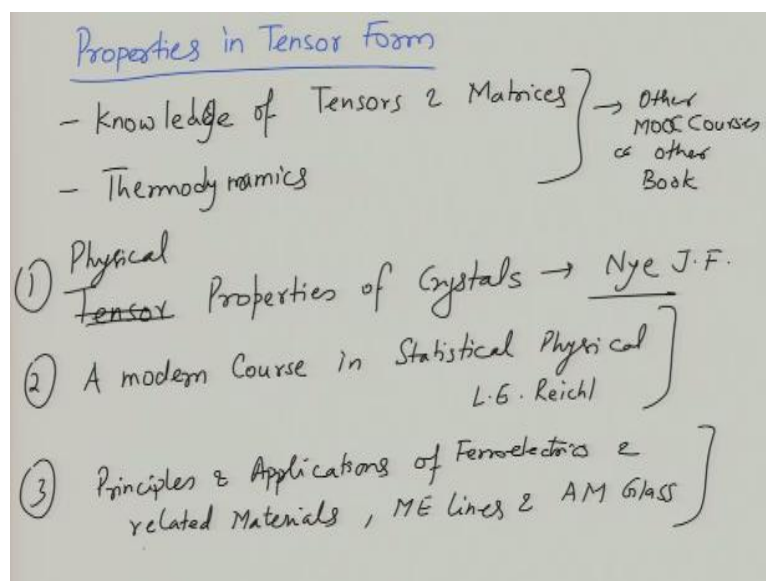 Properties in Tensor Form
- Knowledge of Tensors & Matrices → Other
MOOC Courses
or other
Book
- Thermodynamics
① Physical
Tensor Properties of Crystals → Nye J.F.
② A modern Course in Statistical Physical
L.E. Reichl
③ Principles & Applications of Ferroelectrics &
related Materials, ME Lines & AM Glass